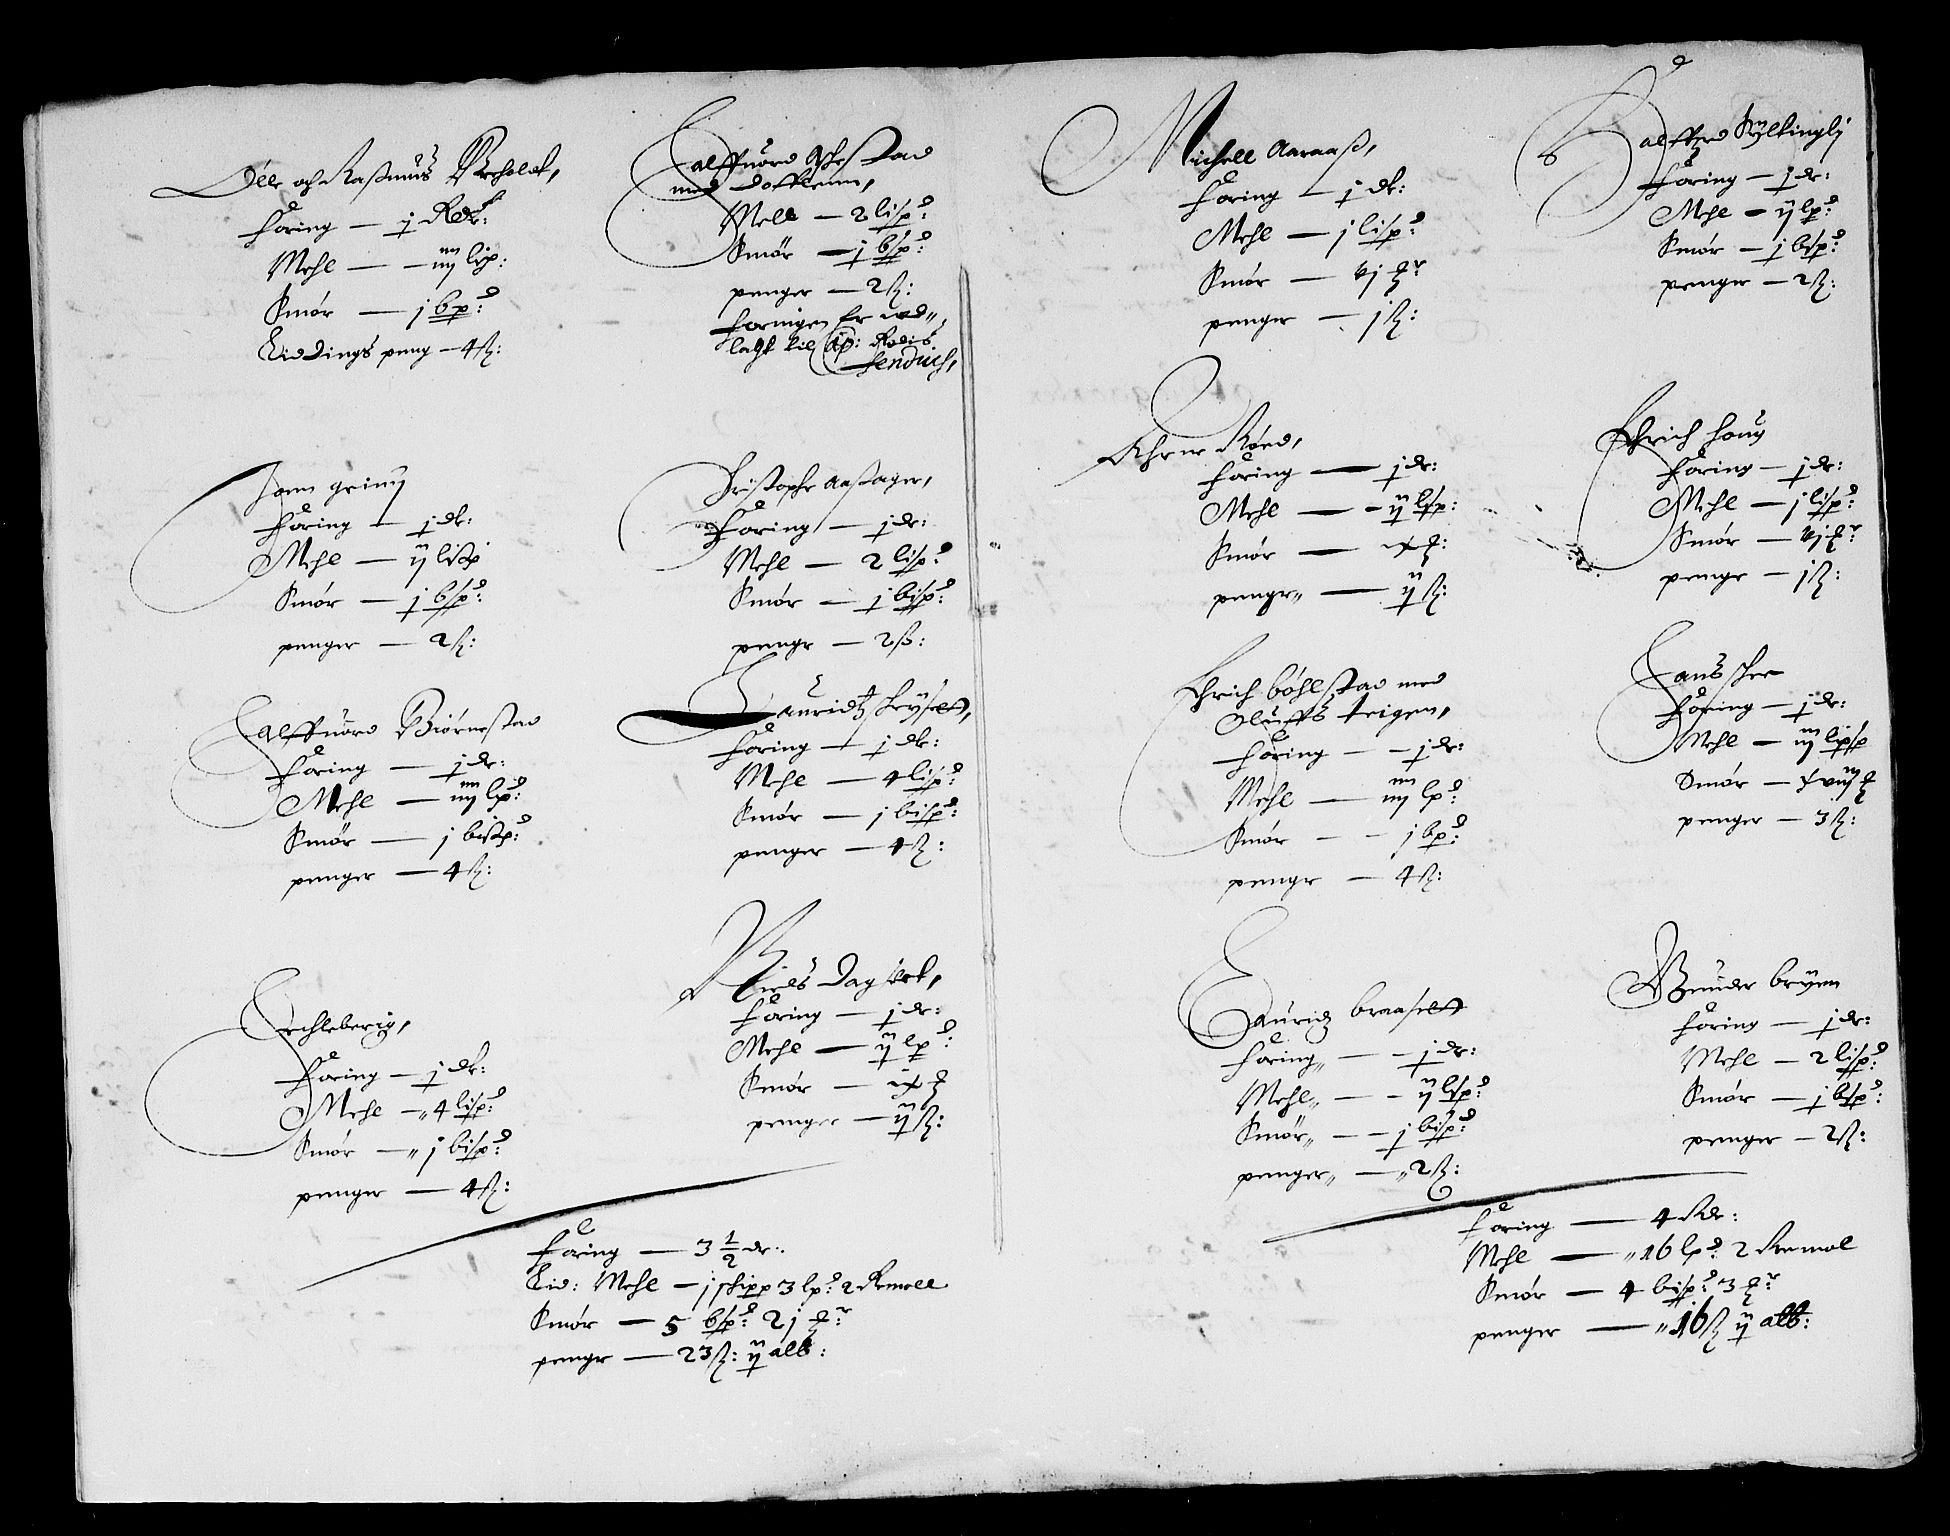 Olle och Rasmus
Foring — j Rdr:
Mehl — iiij lisp:
Smør — j bp:
Leddings peng — 4 ß:
Jenn grini
Foring — j dr:
Mehl — ij lisp
Smør — j bsp:
penger — 2 ß:
Halffuord Biørnestad
Foring — j dr:
Mehl — iiij lp:
Smør — j bisp:
penger — 4 ß:
Erchleberig,
Foring — j dr:
Mehl — 4 lisp:
Smør — j bisp:
penger — 4 ß:
Halffuord
med
Mell — 2 lisp:
Smør — j bsp:
penger — 2 ß:
Foringen Er
lagt til
Hendrich,
Christopher Aaßager,
Foring — j dr:
Mehl — 2 lisp:
Smør — j bisp:
penger — 2 ß:
Lauridtz
Foring — j dr:
Mehl — 4 lisp:
Smør — j bisp:
penger — 4 ß:
Niels
Foring — j dr:
Mehl — ij lp:
Smør — ix
penger — ij ß:
Foring — 3 1/2 dr:
Led: Mehl — j skipp 3 lp: 2 Remell
Smør — 5 bsp: 21
penger — 23 ß: ij alb:
Michell Aaraaß,
Foring — j dr:
Mehl — j lisp:
Smør — vj
penger — j ß:
Røed,
Foring — j dr:
Mehl — ij lsp:
Smør — ix
penger — ij ß:
Ehrich Böhlstad med
Oluffs teigen,
Foring — j dr:
Mehl — iiij lp:
Smør — j bp:
penger — 4 ß:
Lauridz braaselt
Foring — j dr:
Mehl — ij lsp:
Smør — j bisp:
penger — 2 ß:
Halffuord
Foring — j dr:
Mehl — ij lp:
Smør — j bsp:
penger — 2 ß:
Ehrich houg
Foring — j dr:
Mehl — j lisp:
Smør — vj
penger — j ß:
Hans
Foring — j dr:
Mehl — iij lisp
Smør — xviij
penger — 3 ß:
Gunder bryen
Foring — j dr:
Mehl — 2 lisp:
Smør — j bsp:
penger — 2 ß:
Foring — 4 Rdr:
Mehl — 16 lp: 2 Remol
Smør — 4 bisp: 3
penger — 16 ß ij alb: